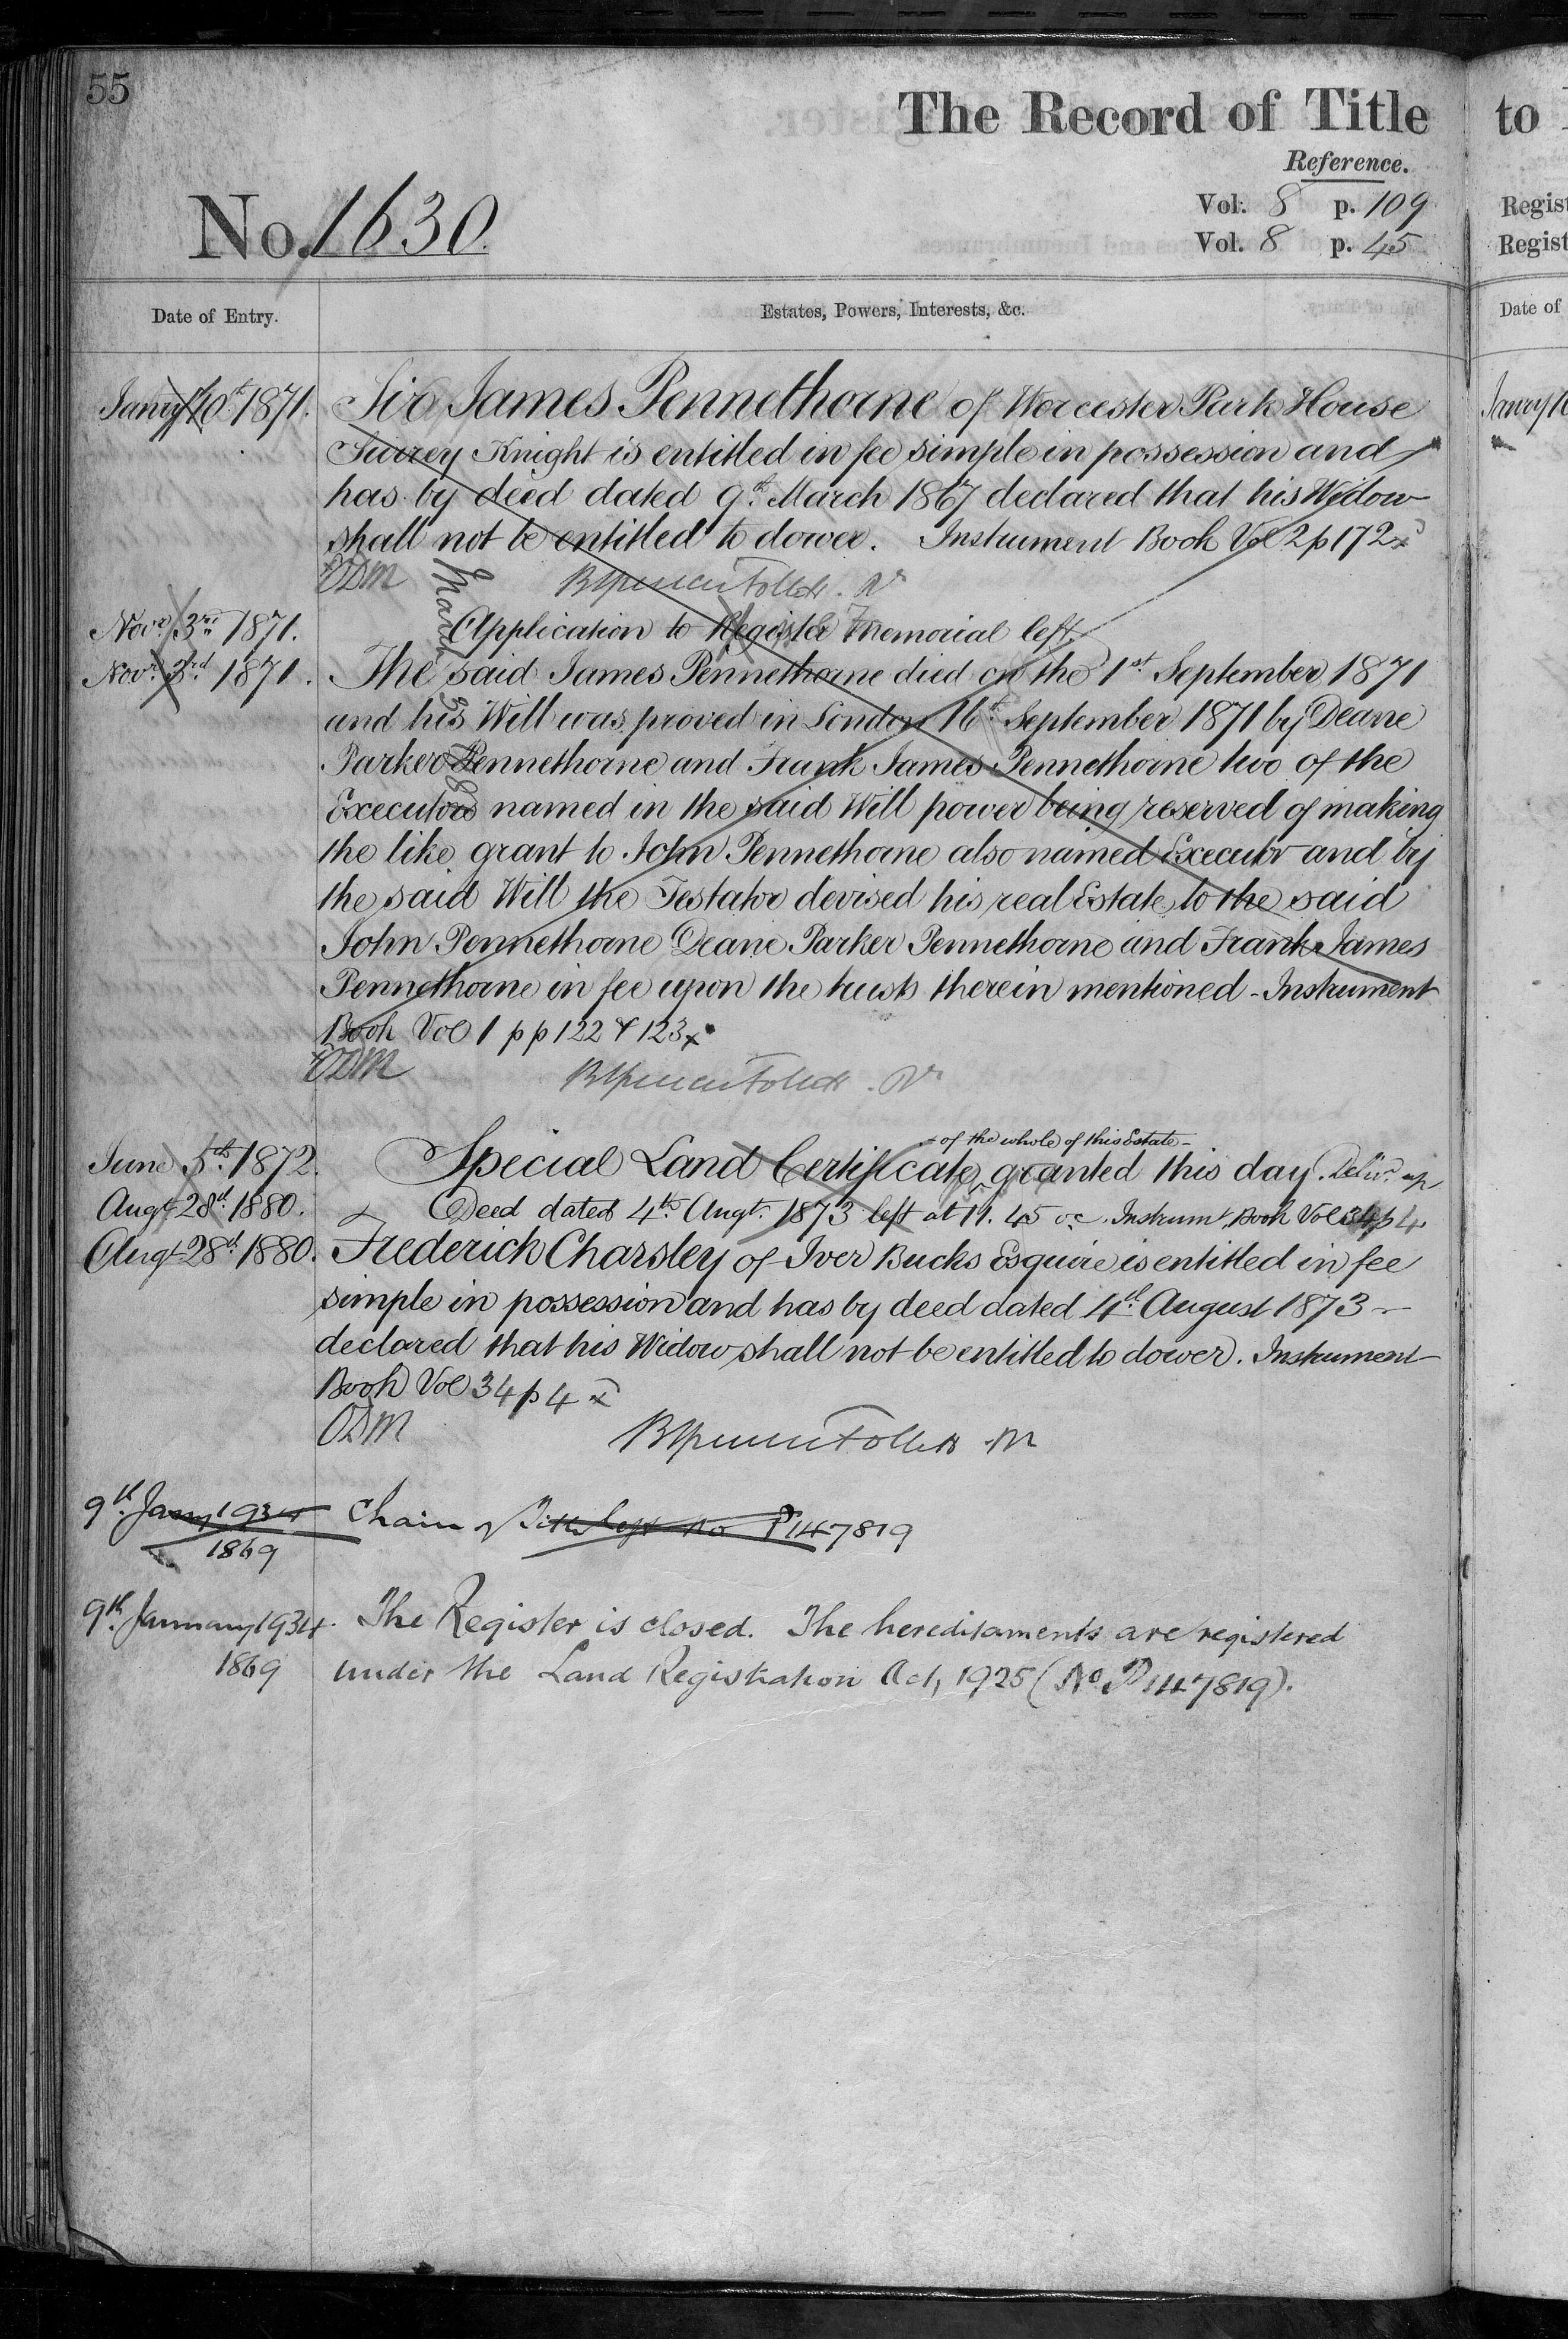 55
The Record of Title
Reference.
No. 1630.
Vol. 8 p. 109
Vol. 8 p. 45
Date of Entry.
Estates, Powers, Interests, &c.
Janry 10th 1871. Sir James Pennethorne of Worcester Park House
Surrey Knight is entitled in fee simple in possession and
has by deed dated 9th March 1867 declared that his Widow
shall not be entitled to dower. Instrument Book Vol 2 p 172
ODM
Novr 3rd 1871. Application to Register Memorial left.
Novr 3rd 1871. The said James Pennethorne died on the 1st September 1871
and his Will was proved in London 16th September 1871 by Deane
Parker Pennethorne and Frank James Pennethorne two of the
Executors named in the said Will power being reserved of making
the like grant to John Pennethorne also named Executor and by
the said Will the Testator devised his real Estate to the said
John Pennethorne Deane Parker Pennethorne and Frank James
Pennethorne in fee upon the trusts therein mentioned - Instrument
Book Vol 1 pp 122 & 123
ODM
March
- of the whole of this Estate -
June 5th 1872. Special Land Certificate granted this day. Delivd up
Augt 28th 1880. Deed dated 4th Augt. 1873 left at 11.45 Instrumt Book Vol 34 p 4.
Augt 28th 1880. Frederick Charsley of Iver Bucks Esquire is entitled in fee
simple in possession and has by deed dated 4th August 1873 -
declared that his Widow shall not be entitled to dower. Instrument
Book Vol 34 p 4
ODM
9th Jany 1934 Chain of Title left No P147819
1869
9th January 1934. The Register is closed. The hereditaments are registered
1869 under the Land Registration Act, 1925 (No. P147819).
to
Regist
Regist
Date of
Janry 10